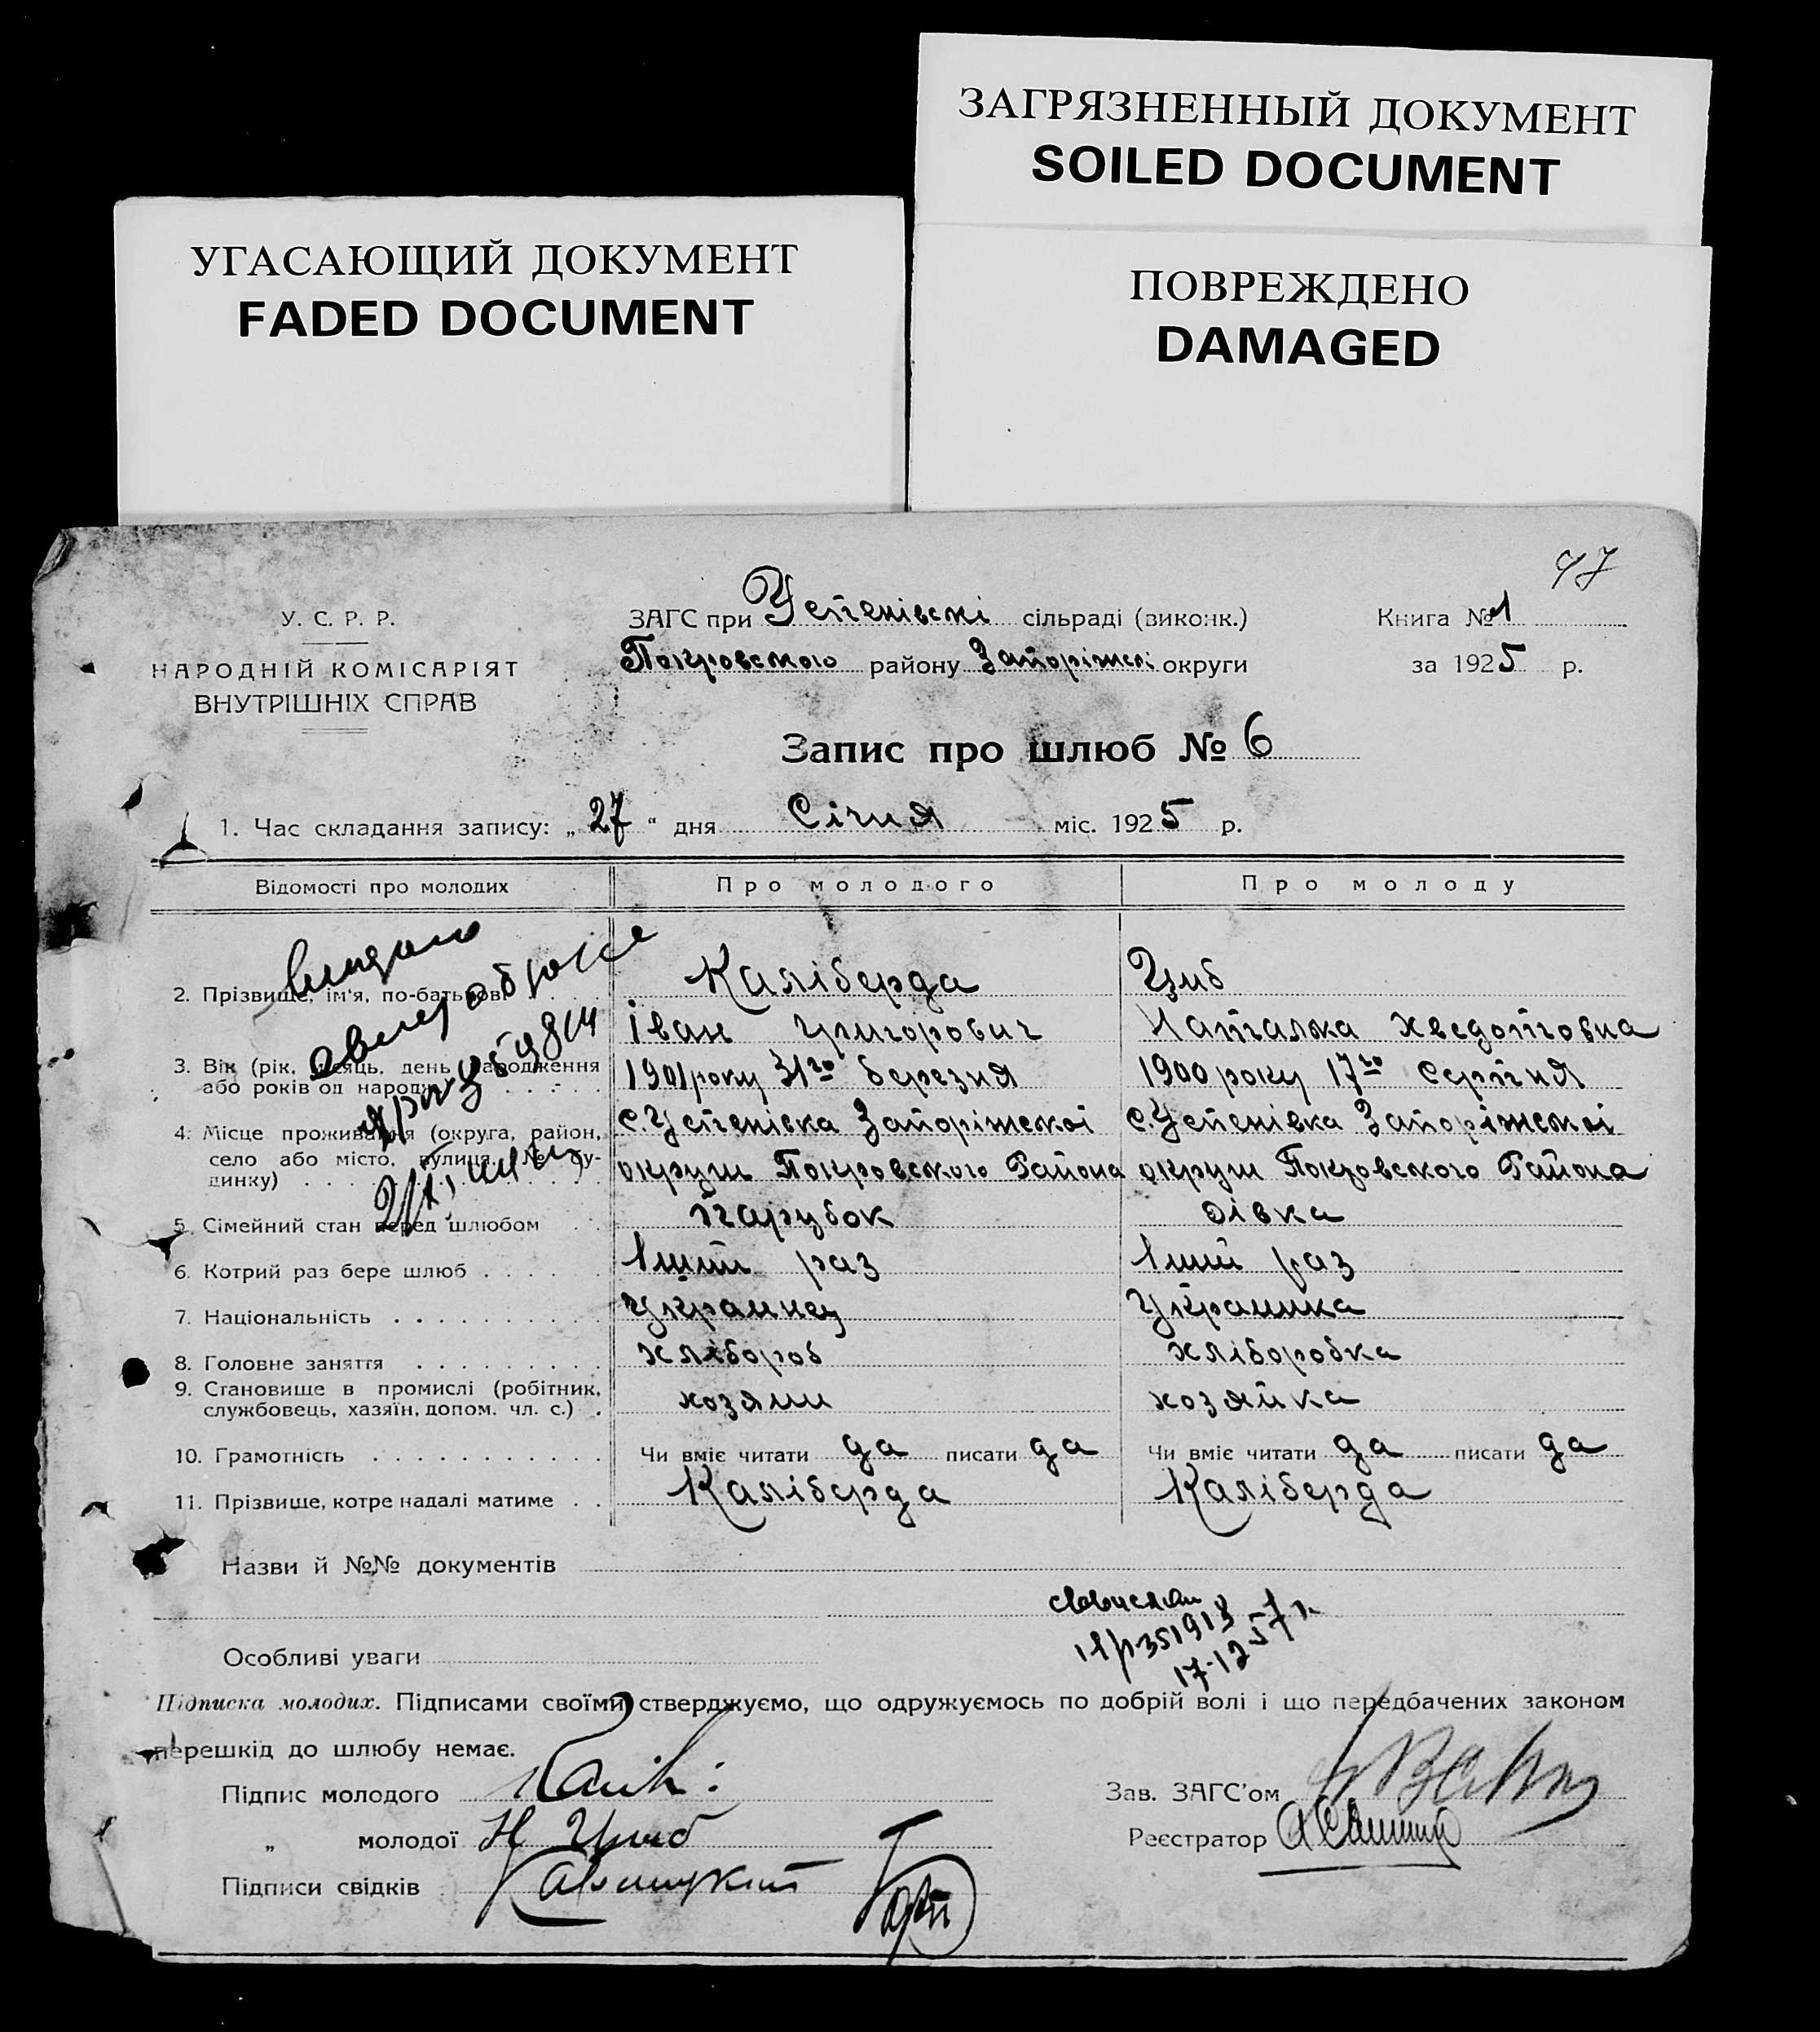 ЗАГРЯЗНЕННЫЙ ДОКУМЕНТ
SOILED DOCUMENT
УГАСАЮЩИЙ ДОКУМЕНТ
FADED DOCUMENT
ПОВРЕЖДЕНО
DAMAGED
47
У. С. Р. Р.
НАРОДНІЙ КОМІСАРІЯТ
ВНУТРІШНІХ СПРАВ
ЗАГС при Успенівскі сільраді (виконк.)
Покровського району Запоріжскі округи
Книга № 1
за 1925 р.
Запис про шлюб № 6
1. Час складання запису: „27“ дня Січня міс. 1925 р.
Відомості про молодих Про молодого Про молоду
Видано
2. Прізвище, ім'я, по-батькові Каліберда Циб
Іван Григорович Наталка Хведотовна
3. Вік (рік, місяць, день народження 1901 року 31го березня 1900 року 17го Серпня
або років од народж.
4. Місце проживання (округа, район, с. Успенівка Запоріжської с. Успенівка Запоріжської
село або місто, вулиця, № бу- округи Покровського Района округи Покровського Района
динку)
5. Сімейний стан перед шлюбом Парубок дівка
6. Котрий раз бере шлюб 1ший раз 1ший раз
7. Національність Украинец Украинка
8. Головне заняття хлібороб хліборобка
9. Становище в промислі (робітник, хозяин хозяйка
службовець, хазяїн, допом. чл. с.)
10. Грамотність Чи вміє читати да писати да Чи вміє читати да писати да
11. Прізвище, котре надалі матиме Каліберда Каліберда
Назви й №№ документів
17-12-57 г.
Особливі уваги
Підписка молодих. Підписами своїми стверджуємо, що одружуємось по добрій волі і що передбачених законом
перешкід до шлюбу немає.
Підпис молодого
Зав. ЗАГС'ом
„ молодої Н Циб
Реєстратор
Підписи свідків